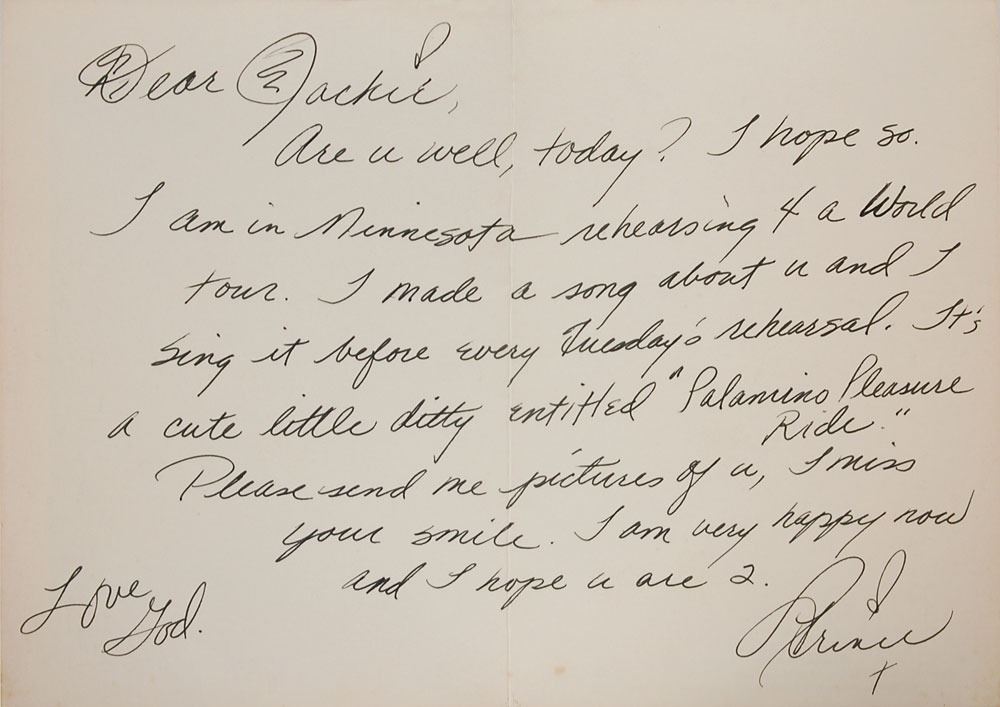 Dear Jackie,
Are u well, today? I hope so.
I am in Minnesota rehearsing 4 a World
tour. I made a song about u and I
sing it before every Tuesday's rehearsal. It's
a cute little ditty entitled "Palamino Pleasure
Ride."
Please send me pictures of u, I miss
your smile. I am very happy now
and I hope u are 2.
Love God.
Prince